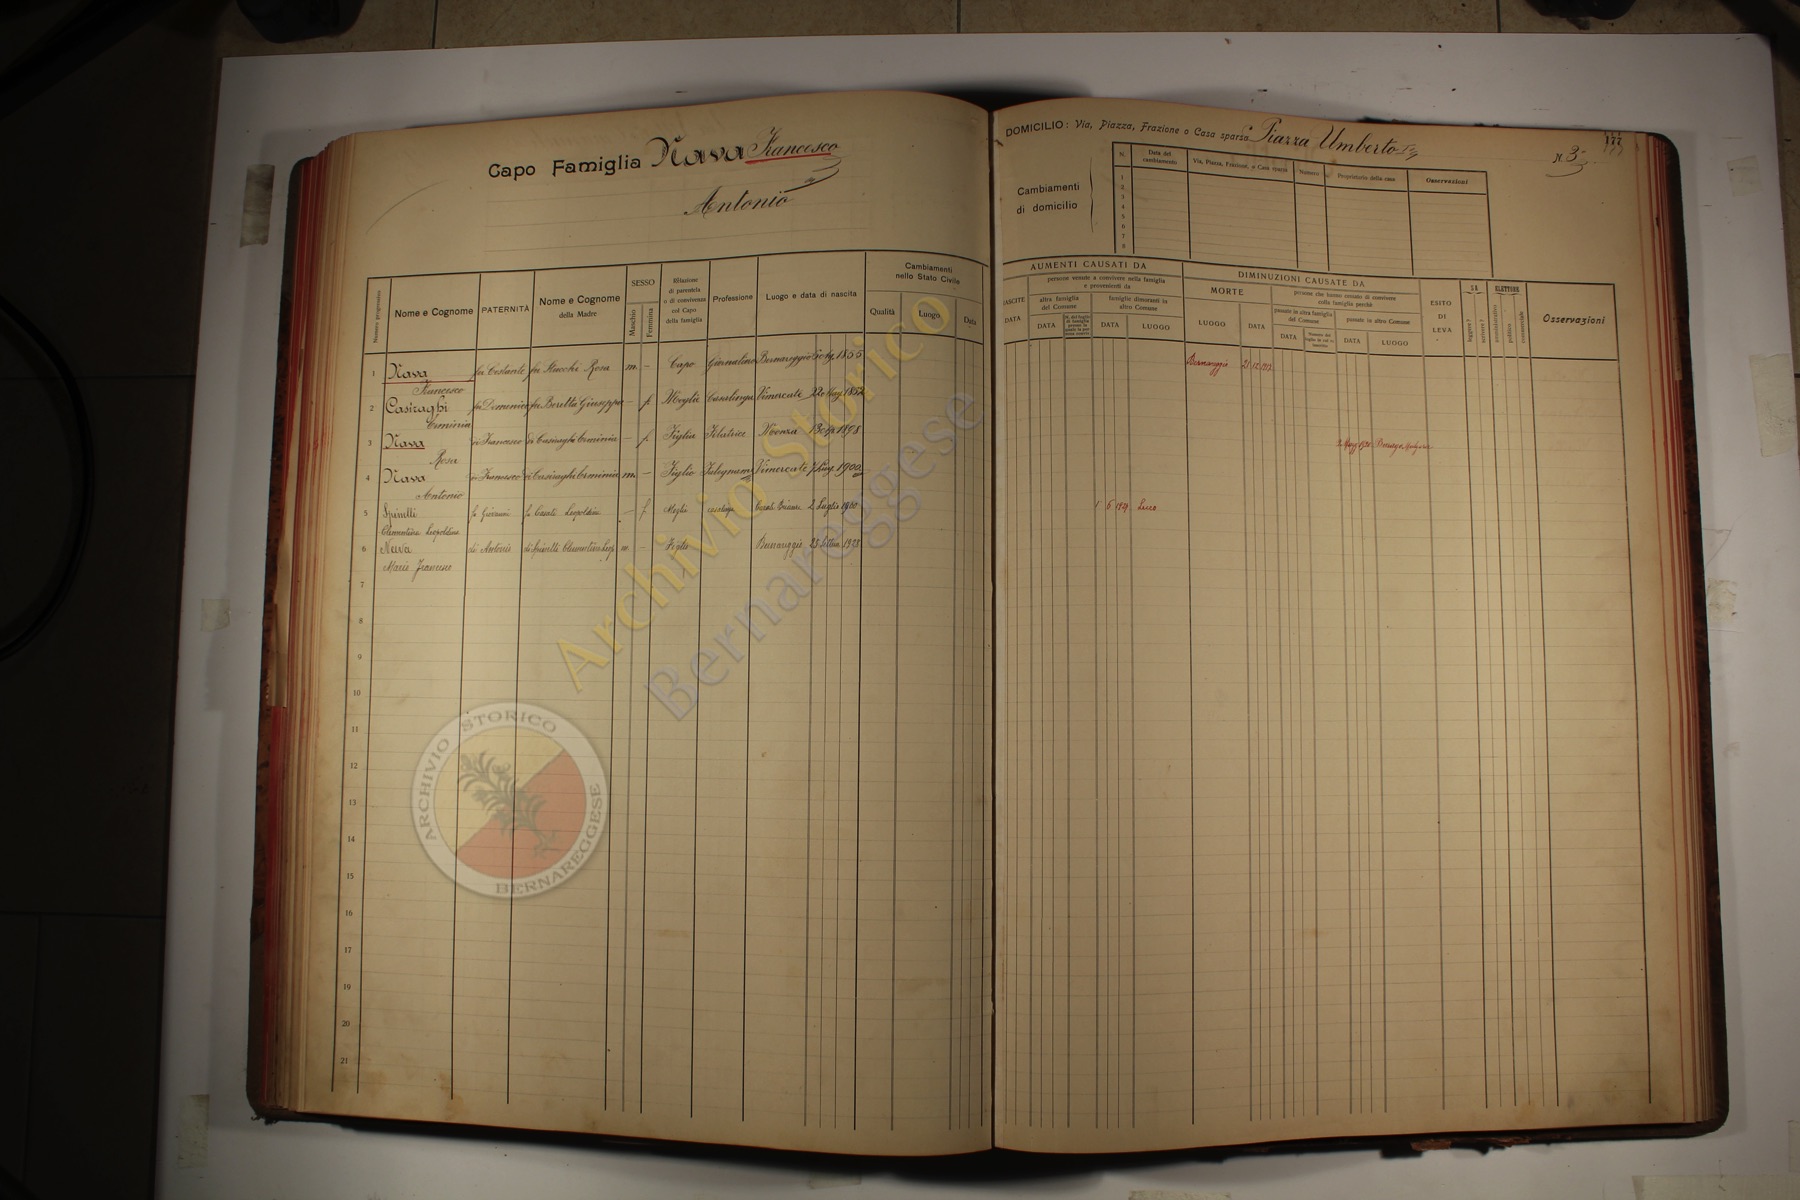 Capo Famiglia Nava Francesco
Antonio
DOMICILIO: Via, Piazza, Frazione o Casa sparsa Piazza Umberto
N. 3
177
Cambiamenti
di domicilio
N. Data del cambiamento Via, Piazza, Frazione, o Casa sparsa Numero Proprietario della casa Osservazioni
1
2
3
4
5
6
7
8
Numero progressivo Nome e Cognome PATERNITÀ Nome e Cognome della Madre SESSO Maschio Femmina Relazione di parentela o di convivenza col Capo della famiglia Professione Luogo e data di nascita Cambiamenti nello Stato Civile Qualità Luogo Data
AUMENTI CAUSATI DA
NASCITE DATA
persone venute a convivere nella famiglia e provenienti da
altra famiglia del Comune DATA
famiglie dimoranti in altro Comune DATA LUOGO
DIMINUZIONI CAUSATE DA
MORTE LUOGO DATA
persone che hanno cessato di convivere colla famiglia perchè
passate in altra famiglia del Comune DATA
passate in altro Comune DATA LUOGO
ESITO DI LEVA
SA leggere? scrivere?
ELETTORE amministrativo politico commerciale
Osservazioni
1 Nava Francesco fu Costante fu Stucchi Rosa m. — Capo Giornalino Bernareggio 1855 Bernareggio
2 Casiraghi Erminia fu Domenico fu Beretta Giuseppa — f. Moglie Casalinga Vimercate 22 Mag. 1852
3 Nava Rosa di Francesco di Casiraghi Erminia — f. Figlia Filatrice Monza 1898
4 Nava Antonio di Francesco di Casiraghi Erminia m. — Figlio Falegname Vimercate 1900
5 Spinelli Clementina Leopoldina fu Giovanni fu Casati Leopoldina — f Moglie casalinga 2 Luglio 1900 1 6 1929
6 Nava Mario Francesco di Antonio di Spinelli Clementina m — Figlio Bernareggio 1928
7
8
9
10
11
12
13
14
15
16
17
18
19
20
21
Archivio Storico
Bernareggese
ARCHIVIO STORICO
BERNAREGGESE